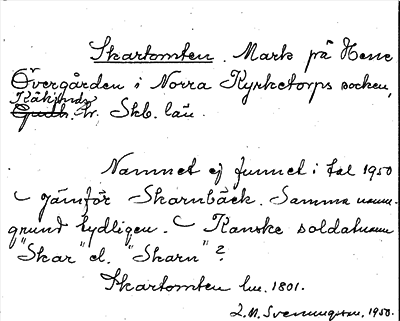 Skartomten. Mark på Hene
Övergården i Norra Kyrketorps socken,
Kåkinds
Gudh. hr. Skb. län.
Namnet ej funnet i tal 1950
– jämför Skarnbäck. Samma namn-
grund tydligen. – Kanske soldatnamn
"Skar" el. "Skarn"?
Skartomten lm. 1801.
L.M. Svenungsson, 1950.